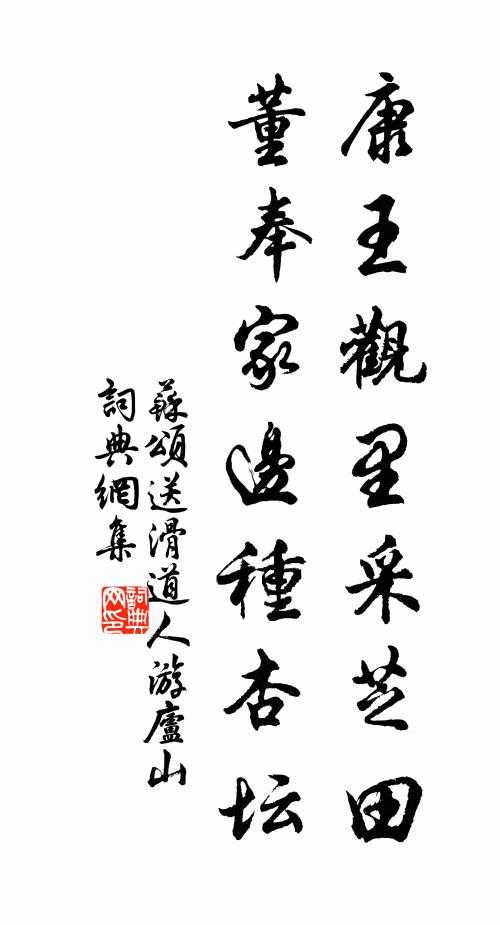 康王觀里采芝田
董奉家邊種杏坛
蘇頌送滑道人游廬山
詞典網集
詞典网印